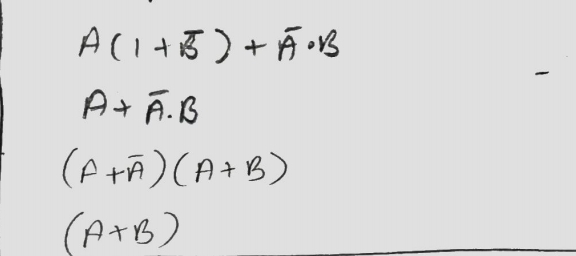 A(1+B̅)+A̅·B
A+A̅.B
(A+A̅)(A+B)
(A+B)